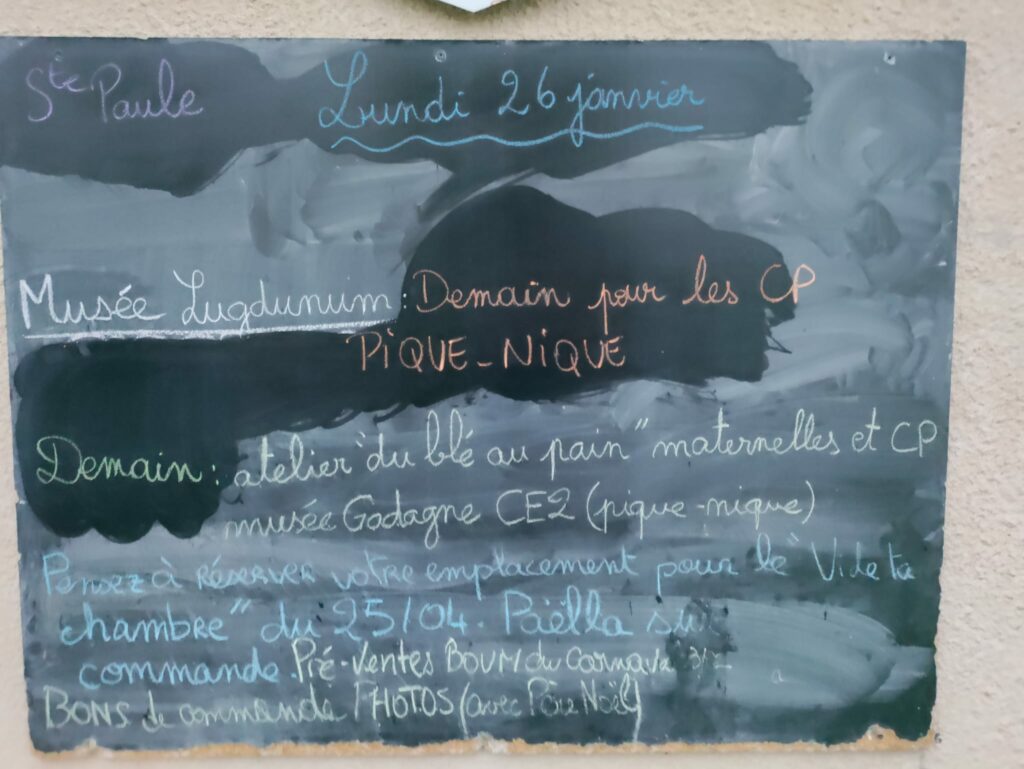 Ste Paule Lundi 26 janvier
Musée Lugdunum : Demain pour les CP
PiQUE-NiQUE
Demain : atelier "du blé au pain" maternelles et CP
musée Gadagne CE2 (pique-nique)
Pensez à réserver votre emplacement pour le "Vide ta
chambre" du 25/04. Paëlla sur
commande. Pré-Ventes BOUM du Carnaval
BONS de commande PHOTOS (avec Père Noël)